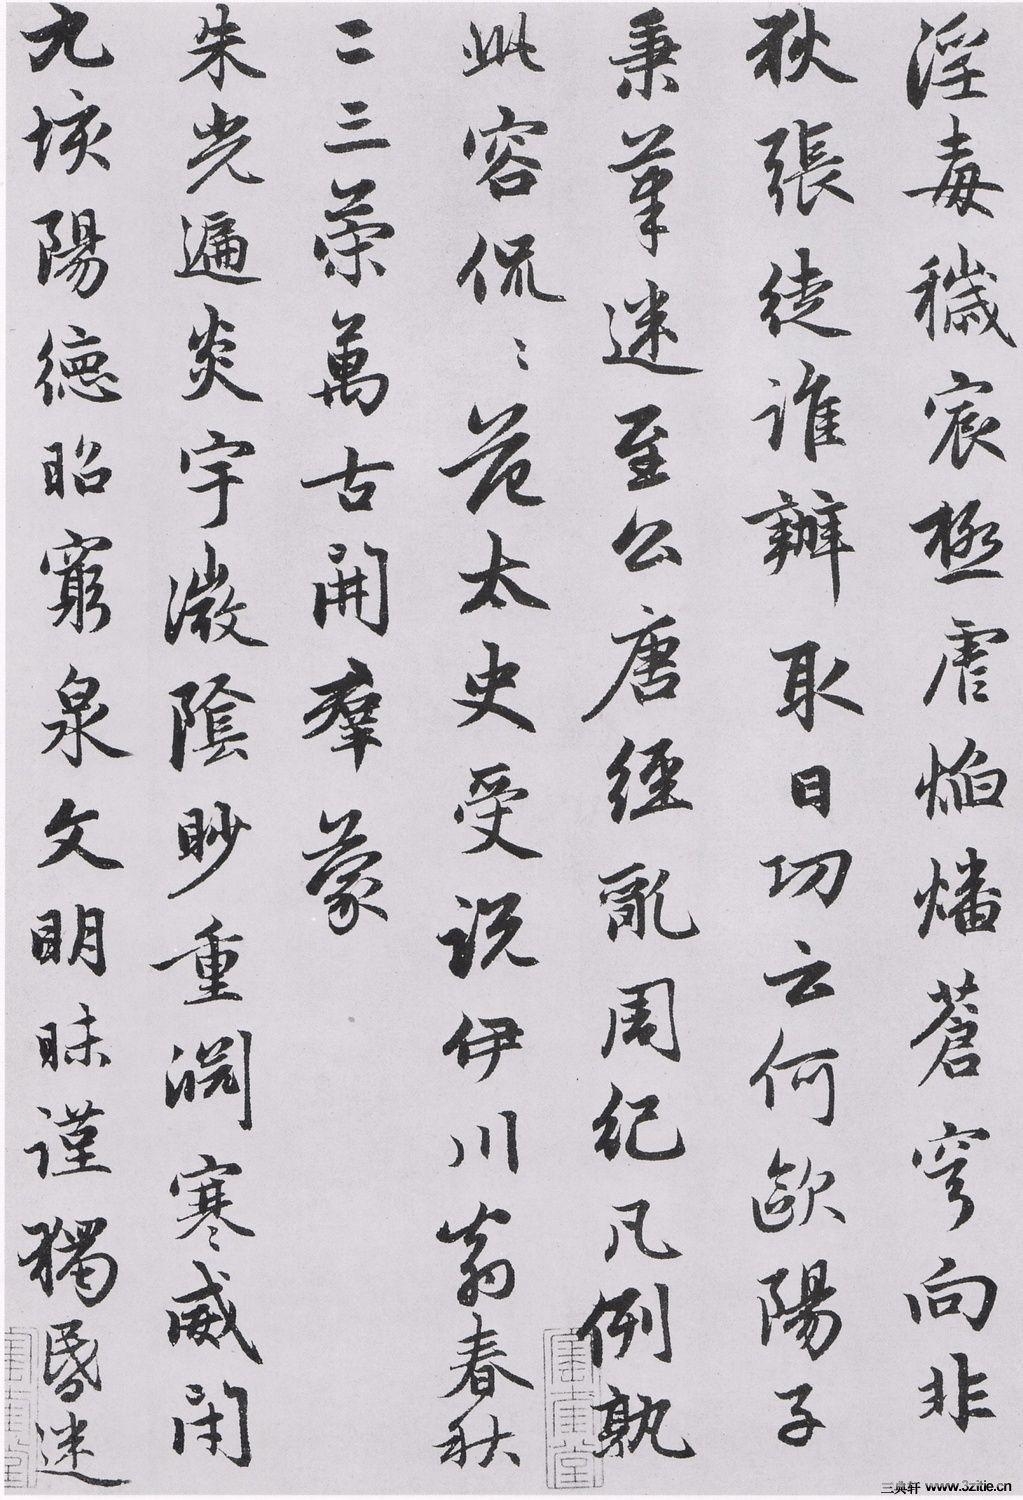 淫毒穢宸極虐焰燔蒼穹向非
狄張徒誰辦取日功云何歐陽子
秉筆迷至公唐經亂周紀凡例孰
此容侃〻范太史受說伊川翁春秋
二三策萬古開羣蒙
朱光遍炎宇微陰眇重淵寒威閉
九垓陽德昭窮泉文明昧謹獨昏迷
三典轩 www.3zitie.cn